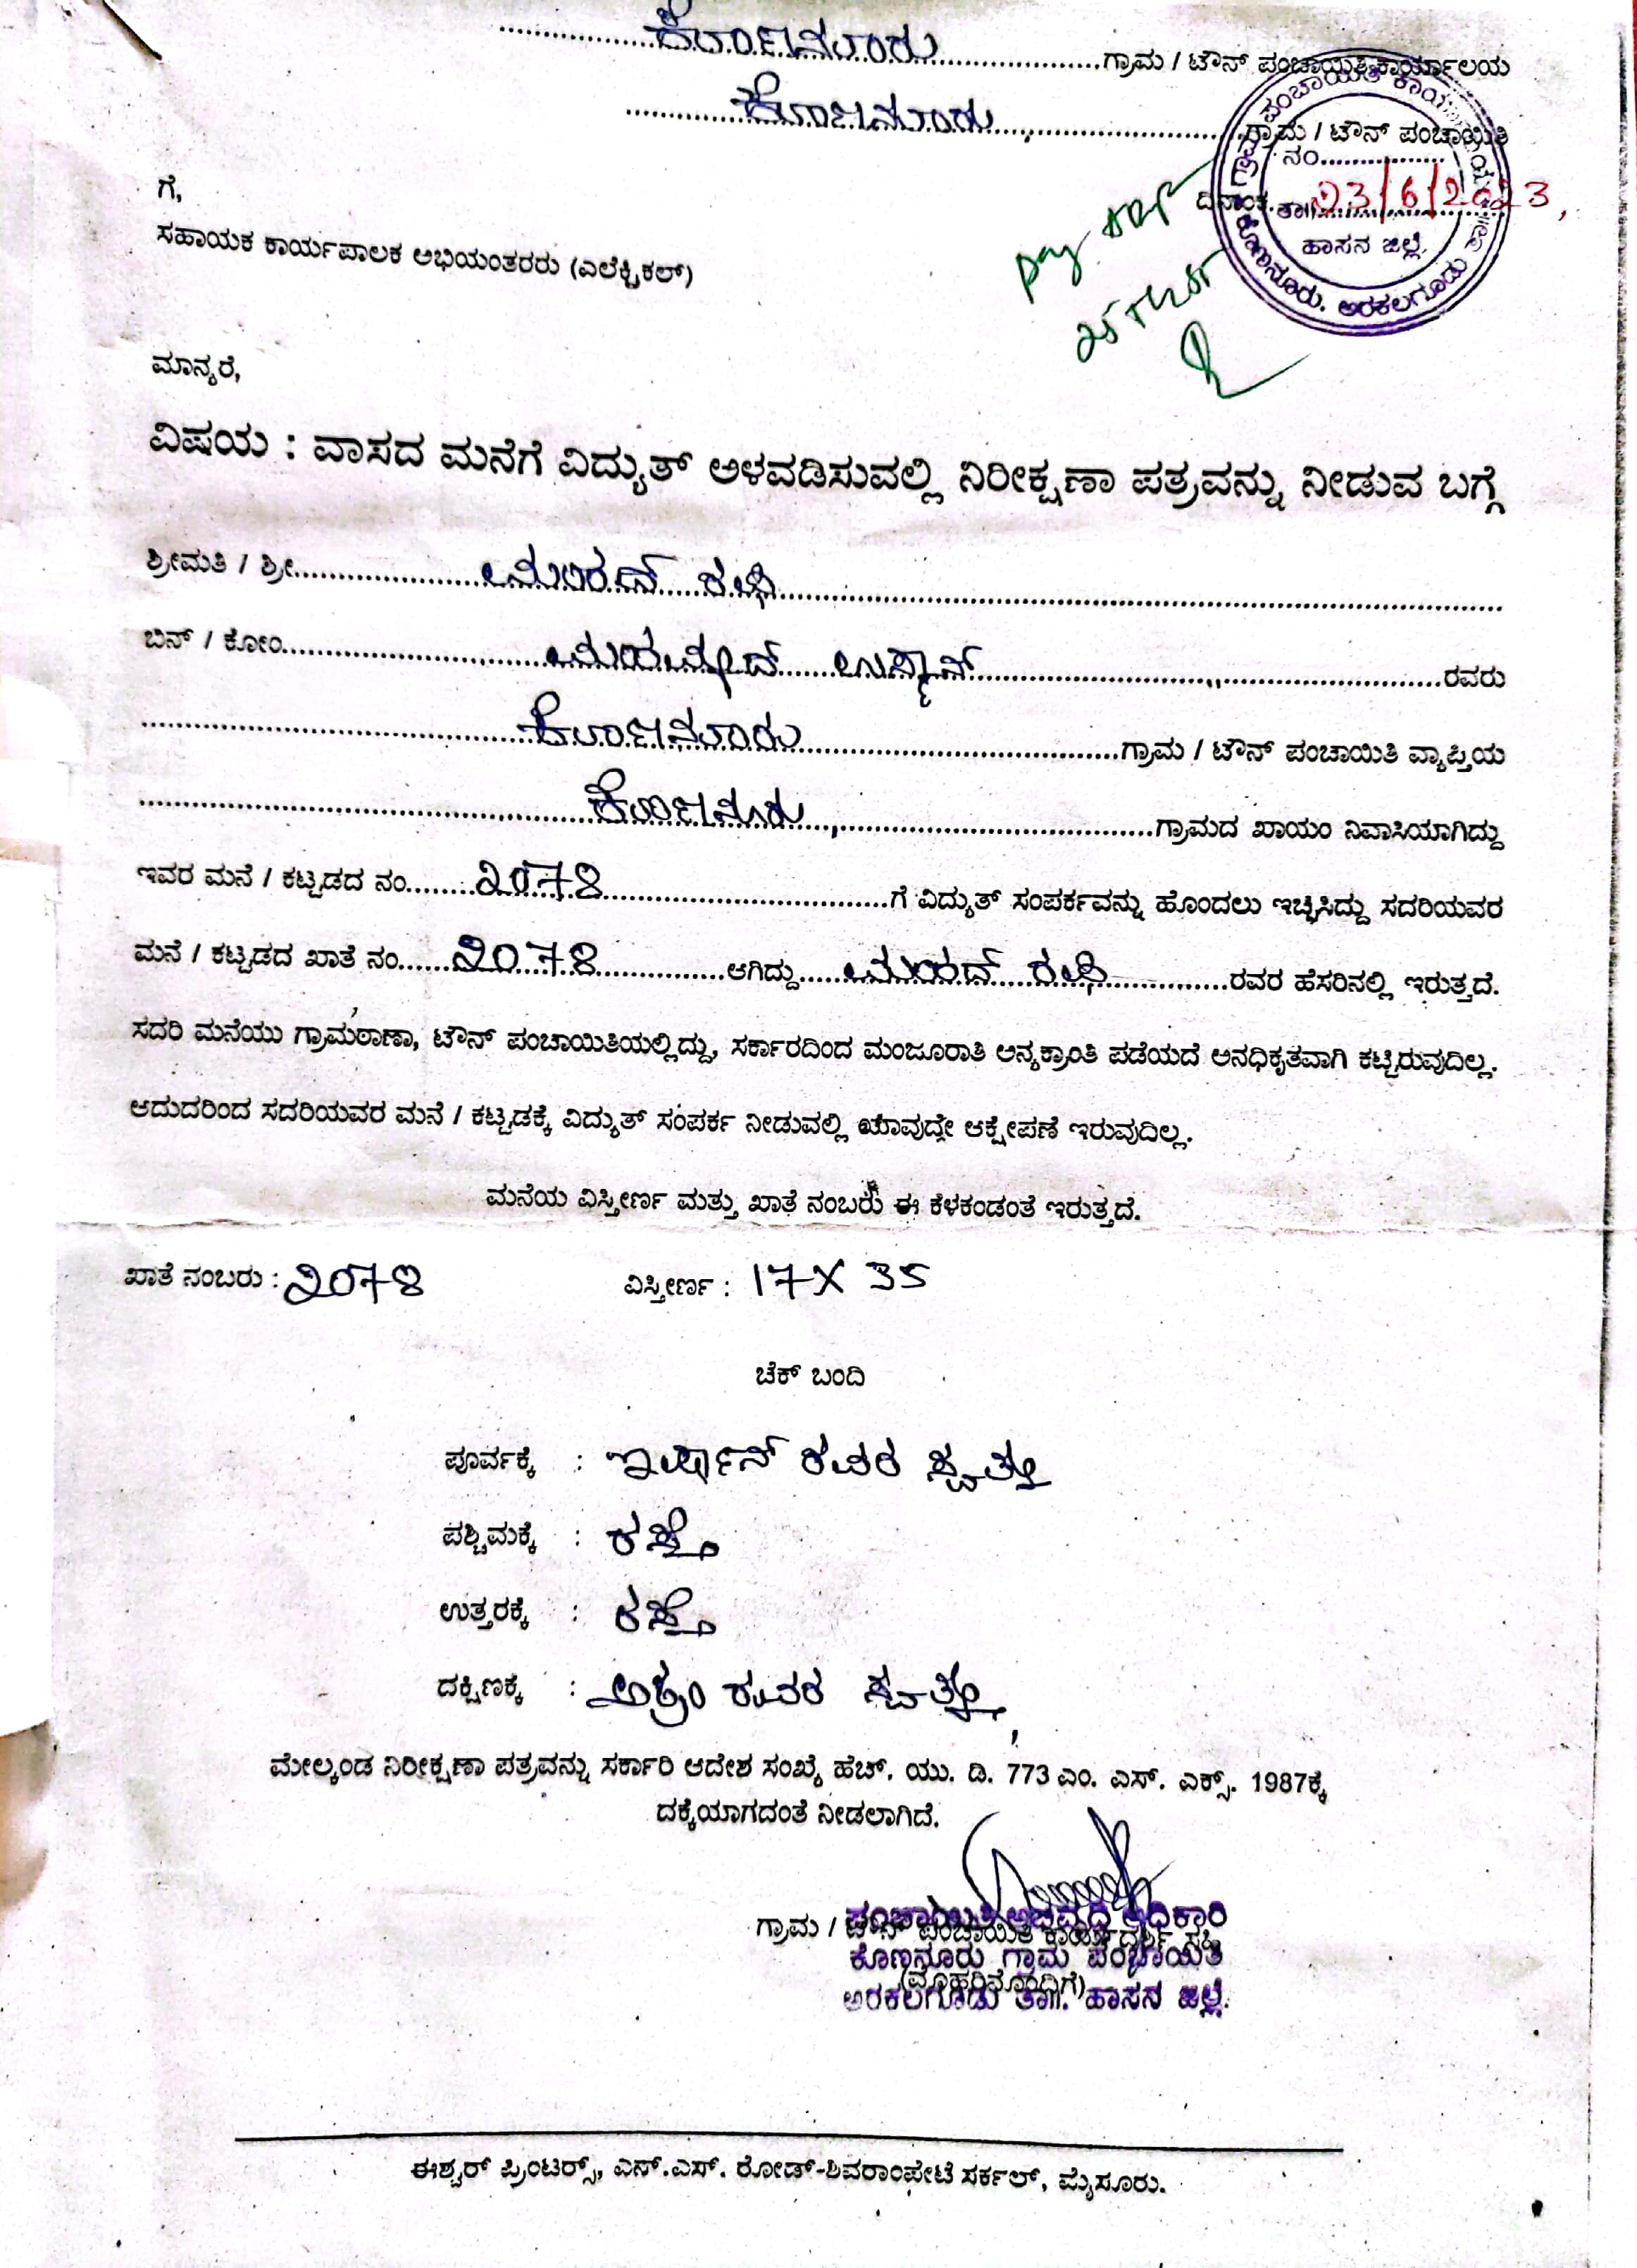 ಕೊಣನೂರು ಗ್ರಾಮ / ಟೌನ್ ಪಂಚಾಯಿತಿ ಕಾರ್ಯಾಲಯ
ಕೊಣನೂರು, ಗ್ರಾಮ / ಟೌನ್ ಪಂಚಾಯಿತಿ
ನಂ.
ದಿನಾಂಕ. 23/6/2023,
ಹಾಸನ ಜಿಲ್ಲೆ.
ಕೊಣನೂರು. ಅರಕಲಗೂಡು
ಗೆ,
ಸಹಾಯಕ ಕಾರ್ಯಪಾಲಕ ಅಭಿಯಂತರರು (ಎಲೆಕ್ಟ್ರಿಕಲ್)
ಮಾನ್ಯರೆ,
ವಿಷಯ : ವಾಸದ ಮನೆಗೆ ವಿದ್ಯುತ್ ಅಳವಡಿಸುವಲ್ಲಿ ನಿರೀಕ್ಷಣಾ ಪತ್ರವನ್ನು ನೀಡುವ ಬಗ್ಗೆ
ಶ್ರೀಮತಿ / ಶ್ರೀ
ಬಿನ್ / ಕೋಂ ಮಹಮ್ಮದ್ ಉಸ್ಮಾನ್ ರವರು
ಕೊಣನೂರು ಗ್ರಾಮ / ಟೌನ್ ಪಂಚಾಯಿತಿ ವ್ಯಾಪ್ತಿಯ
ಕೊಣನೂರು, ಗ್ರಾಮದ ಖಾಯಂ ನಿವಾಸಿಯಾಗಿದ್ದು
ಇವರ ಮನೆ / ಕಟ್ಟಡದ ನಂ. 2078 ಗೆ ವಿದ್ಯುತ್ ಸಂಪರ್ಕವನ್ನು ಹೊಂದಲು ಇಚ್ಛಿಸಿದ್ದು ಸದರಿಯವರ
ಮನೆ / ಕಟ್ಟಡದ ಖಾತೆ ನಂ. 2078 ಆಗಿದ್ದು ರವರ ಹೆಸರಿನಲ್ಲಿ ಇರುತ್ತದೆ.
ಸದರಿ ಮನೆಯು ಗ್ರಾಮಠಾಣಾ, ಟೌನ್ ಪಂಚಾಯಿತಿಯಲ್ಲಿದ್ದು, ಸರ್ಕಾರದಿಂದ ಮಂಜೂರಾತಿ ಅನ್ಯಕ್ರಾಂತಿ ಪಡೆಯದೆ ಅನಧಿಕೃತವಾಗಿ ಕಟ್ಟಿರುವುದಿಲ್ಲ.
ಆದುದರಿಂದ ಸದರಿಯವರ ಮನೆ / ಕಟ್ಟಡಕ್ಕೆ ವಿದ್ಯುತ್ ಸಂಪರ್ಕ ನೀಡುವಲ್ಲಿ ಯಾವುದೇ ಆಕ್ಷೇಪಣೆ ಇರುವುದಿಲ್ಲ.
ಮನೆಯ ವಿಸ್ತೀರ್ಣ ಮತ್ತು ಖಾತೆ ನಂಬರು ಈ ಕೆಳಕಂಡಂತೆ ಇರುತ್ತದೆ.
ಖಾತೆ ನಂಬರು : 2078 ವಿಸ್ತೀರ್ಣ : 17 X 35
ಚೆಕ್ ಬಂದಿ
ಪೂರ್ವಕ್ಕೆ : ಇರ್ಫಾನ್ ರವರ ಸ್ವತ್ತು
ಪಶ್ಚಿಮಕ್ಕೆ : ರಸ್ತೆ
ಉತ್ತರಕ್ಕೆ : ರಸ್ತೆ
ದಕ್ಷಿಣಕ್ಕೆ : ಅಕ್ರಂ ರವರ ಸ್ವತ್ತು,
ಮೇಲ್ಕಂಡ ನಿರೀಕ್ಷಣಾ ಪತ್ರವನ್ನು ಸರ್ಕಾರಿ ಆದೇಶ ಸಂಖ್ಯೆ ಹೆಚ್. ಯು. ಡಿ. 773 ಎಂ. ಎಸ್. ಎಕ್ಸ್. 1987ಕ್ಕೆ
ದಕ್ಕೆಯಾಗದಂತೆ ನೀಡಲಾಗಿದೆ.
ಪಂಚಾಯಿತಿ ಅಭಿವೃದ್ಧಿ ಅಧಿಕಾರಿ
ಗ್ರಾಮ / ಟೌನ್ ಪಂಚಾಯಿತಿ ಕಾರ್ಯದರ್ಶಿ ಸಹಿ
ಕೊಣನೂರು ಗ್ರಾಮ ಪಂಚಾಯಿತಿ
(ಮೊಹರಿನೊಂದಿಗೆ)
ಅರಕಲಗೂಡು ತಾ||. ಹಾಸನ ಜಿಲ್ಲೆ.
ಈಶ್ವರ್ ಪ್ರಿಂಟರ್ಸ್, ಎನ್.ಎಸ್. ರೋಡ್-ಶಿವರಾಂಪೇಟೆ ಸರ್ಕಲ್, ಮೈಸೂರು.